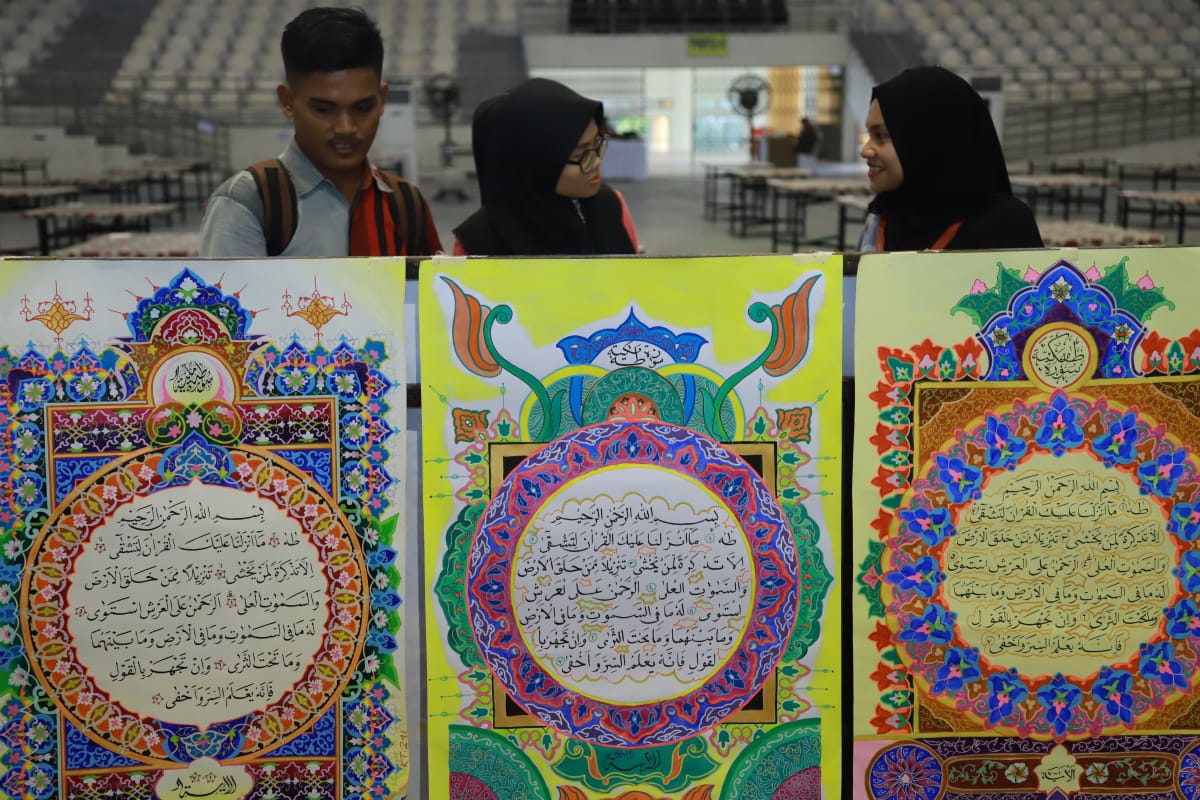 سورة طه مكية
بسم الله الرحمن الرحيم
طه ما انزلنا عليك القران لتشقى
الا تذكرة لمن يخشى تنزيلا ممن خلق الارض
والسموت العلى الرحمن على العرش استوى
له ما فى السموت وما فى الارض وما بينهما
وما تحت الثرى وان تجهر بالقول
فانه يعلم السر واخفى
KT.241
سورة طه مكية
بسم الله الرحمن الرحيم
طه ١ ما انزلنا عليك القران لتشقى
الا تذكرة لمن يخشى تنزيلا ممن خلق الارض
والسموت العلى الرحمن على لعرش
استوى له ما فى السموت وما فى الارض
وما بينهما وما تحت الثرى وان تجهر با
لقول فانه يعلم السر واخفى
طه مكية
سورة
بسم الله الرحمن الرحيم
طه ما انزلنا عليك القران لتشقى
الا تذكرة لمن يخشى تنزيلا ممن خلق الارض
والسموت العلى الرحمن على العرش استوى
له ما فى السموت وما فى الارض وما بينهما
وما تحت الثرى وان تجهر بالقول
فانه يعلم السر واخفى
الاية